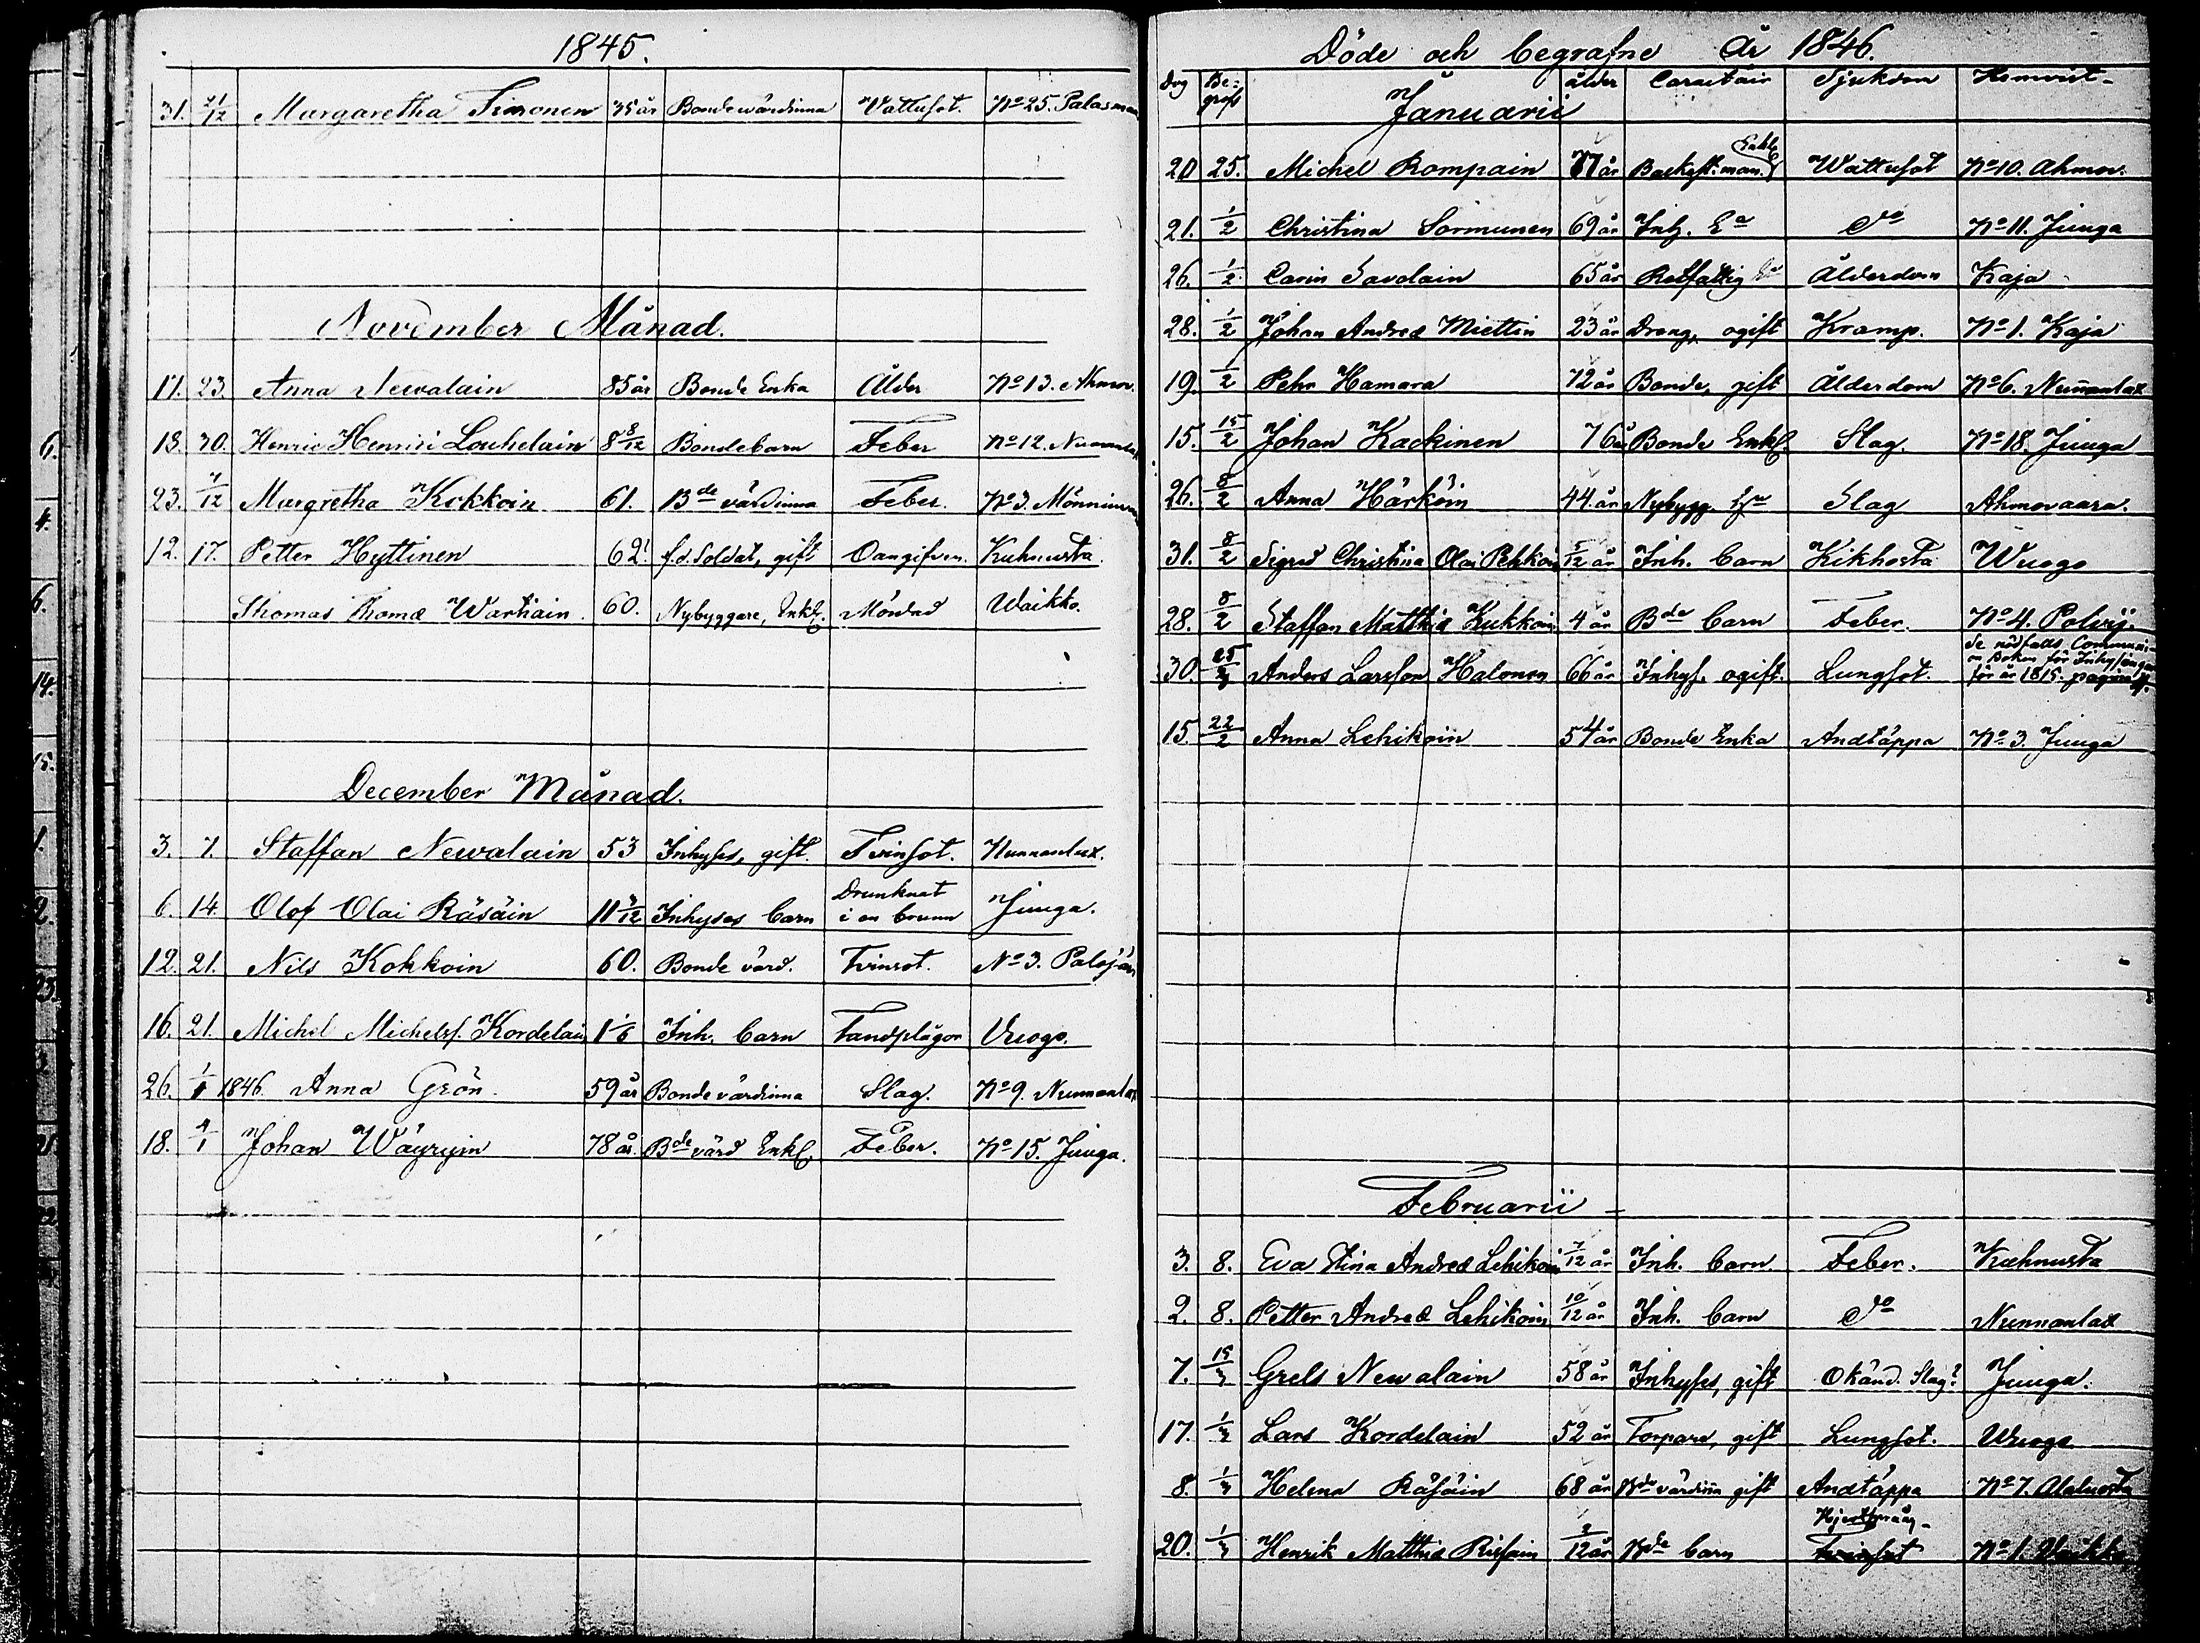 1845.
31. 21/12 Margaretha Timonen 35 år Bondewärdinna Vattusot. No 25. Palasmä
November Månad.
17. 23. Anna Newalain 85 år Bonde Enka Ålder No 13. Ahmov.
18. 30. Henric Henrici Louhelain 8 8/12 Bondebarn Feber No 12. Nunnanlax
23. 7/12 Margretha Kokkoin 61. Bde värdinna Feber. No 3. Mönninvaa
12. 17. Petter Hyttinen 62! f.d. Soldat, gift Oangifven. Kuhnusta.
Thomas Thomæ Wartiain. 60. Nybyggare, Enkl. Mördad Waikko.
December Månad.
3. 7. Staffan Newalain 53 Inhyses, gift. Tvinsot. Nunnanlax.
6. 14 Olof Olai Räsäin 11 /12 Inhyses barn Drunknat i en brunn Juuga.
12. 21. Nils Kokkoin 60. Bonde värd. Tvinsot. No 3. Polvjärv
16. 21. Michel Michelsf. Kordelain 1 1/6 Inh. barn Tandplågor Vuogo.
26. 1/1 1846 Anna Grön. 59 år Bonde värdinna Slag. No 9. Nunnanlax
18. 4/1 Johan Wäyryin 78 år. Bde värd Enkl. Feber. No 15. Juuga.
Döde och begrafne År 1846.
Dag Be-graf ålder Caractair Sjukdom Hemvist-
Januarii
20 25. Michel Rompain 77 år Backst. man. Enkl Wattusot No 10. Ahmov.
21. 1/2 Christina Sormunen 69 år Inh. Ea do No 11. Juuga
26. 1/2 Carin Savolain 65 år Rotfattig Ea Ålderdom Kaja
28. 1/2 Johan Andreæ Miettin 23 år Dreng, ogift Kramp. No 1. Kaja
19. 1/2 Pehr Hamara 72 år Bonde, gift Ålderdom No 6. Nunnanlax
15. 15/2 Johan Kackinen 76 år Bonde Enkl. Slag. No 18. Juuga
26. 8/2 Anna Härköin 44. år Nybygg. Slag Ahmovaara.
31. 8/2 Sigrid Christina Olai Pehkoin 5/12 år Inh. barn Kikhosta Wuogo
28. 8/2 Staffan Matthiæ Kukkoin 4 år Bde barn Feber. No 4. Polvij.
30. 25/3 Anders Larsson Halonen 66 år Inhys. ogift. Lungsot. Se nödfalls Communi-on Boken för Inhysingar för år 1815. pagina
15. 22/2 Anna Lehikoin 54 år Bonde Enka Andtäppa No 3. Juuga
Februarii
3. 8. Eva Stina Andreæ Lehikoin 7/12 år Inh. barn. Feber. Kuhnusta
2. 8. Petter Andreæ Lehikoin 10/12 år Inh. barn do Nunnanlax
7. 15/3 Grels Newalain 58 år Inhyses, gift Okänd. Slag? Juuga.
17. 1/3 Lars Kordelain 52 år Torpare, gift Lungsot. Wuogo
8. 1/3 Helena Räsäin 68 år Bde värdinna gift Andtäppa No 7. Alaluosta
20. 1/3 Henrik Matthiæ Rissain 2/12 år Bde barn Hjertsprång Tvinsot No 1. Waikko